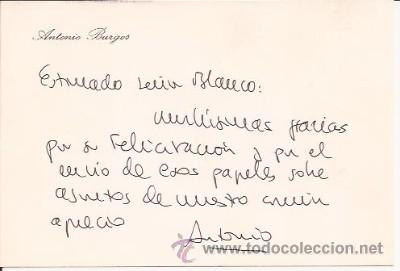 Antonio Burgos
Estimado Blanco:
muchísimas gracias
por su felicitación y por el
envío de esos papeles sobre
aspectos de nuestro común
aprecio
Antonio
todocoleccion
www.todocoleccion.net